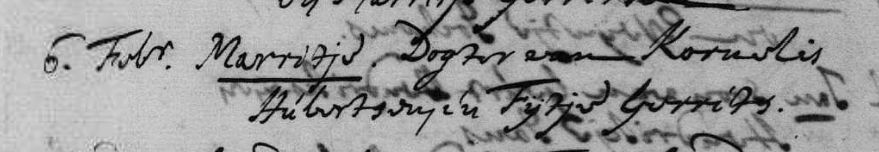 6. Febr. Marritje. Dogter van Kornelis
Húbertsen, en Fijtje Gerrits.